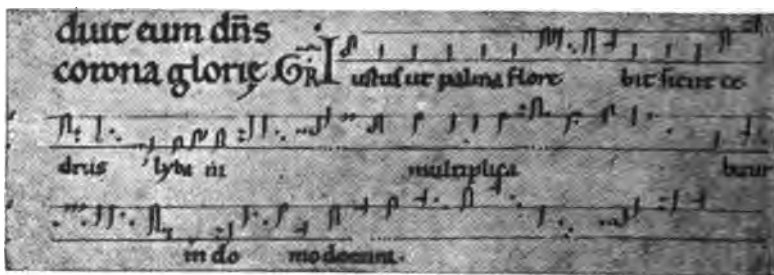 duit eum dñs
corona glorię. GR̃ Iustus ut palma flore bit sicut ce
drus lyba ni multiplica bitur
in do mo domini.